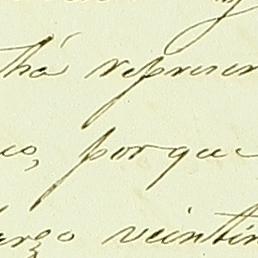 há represen
eo, porque
arzo veintin